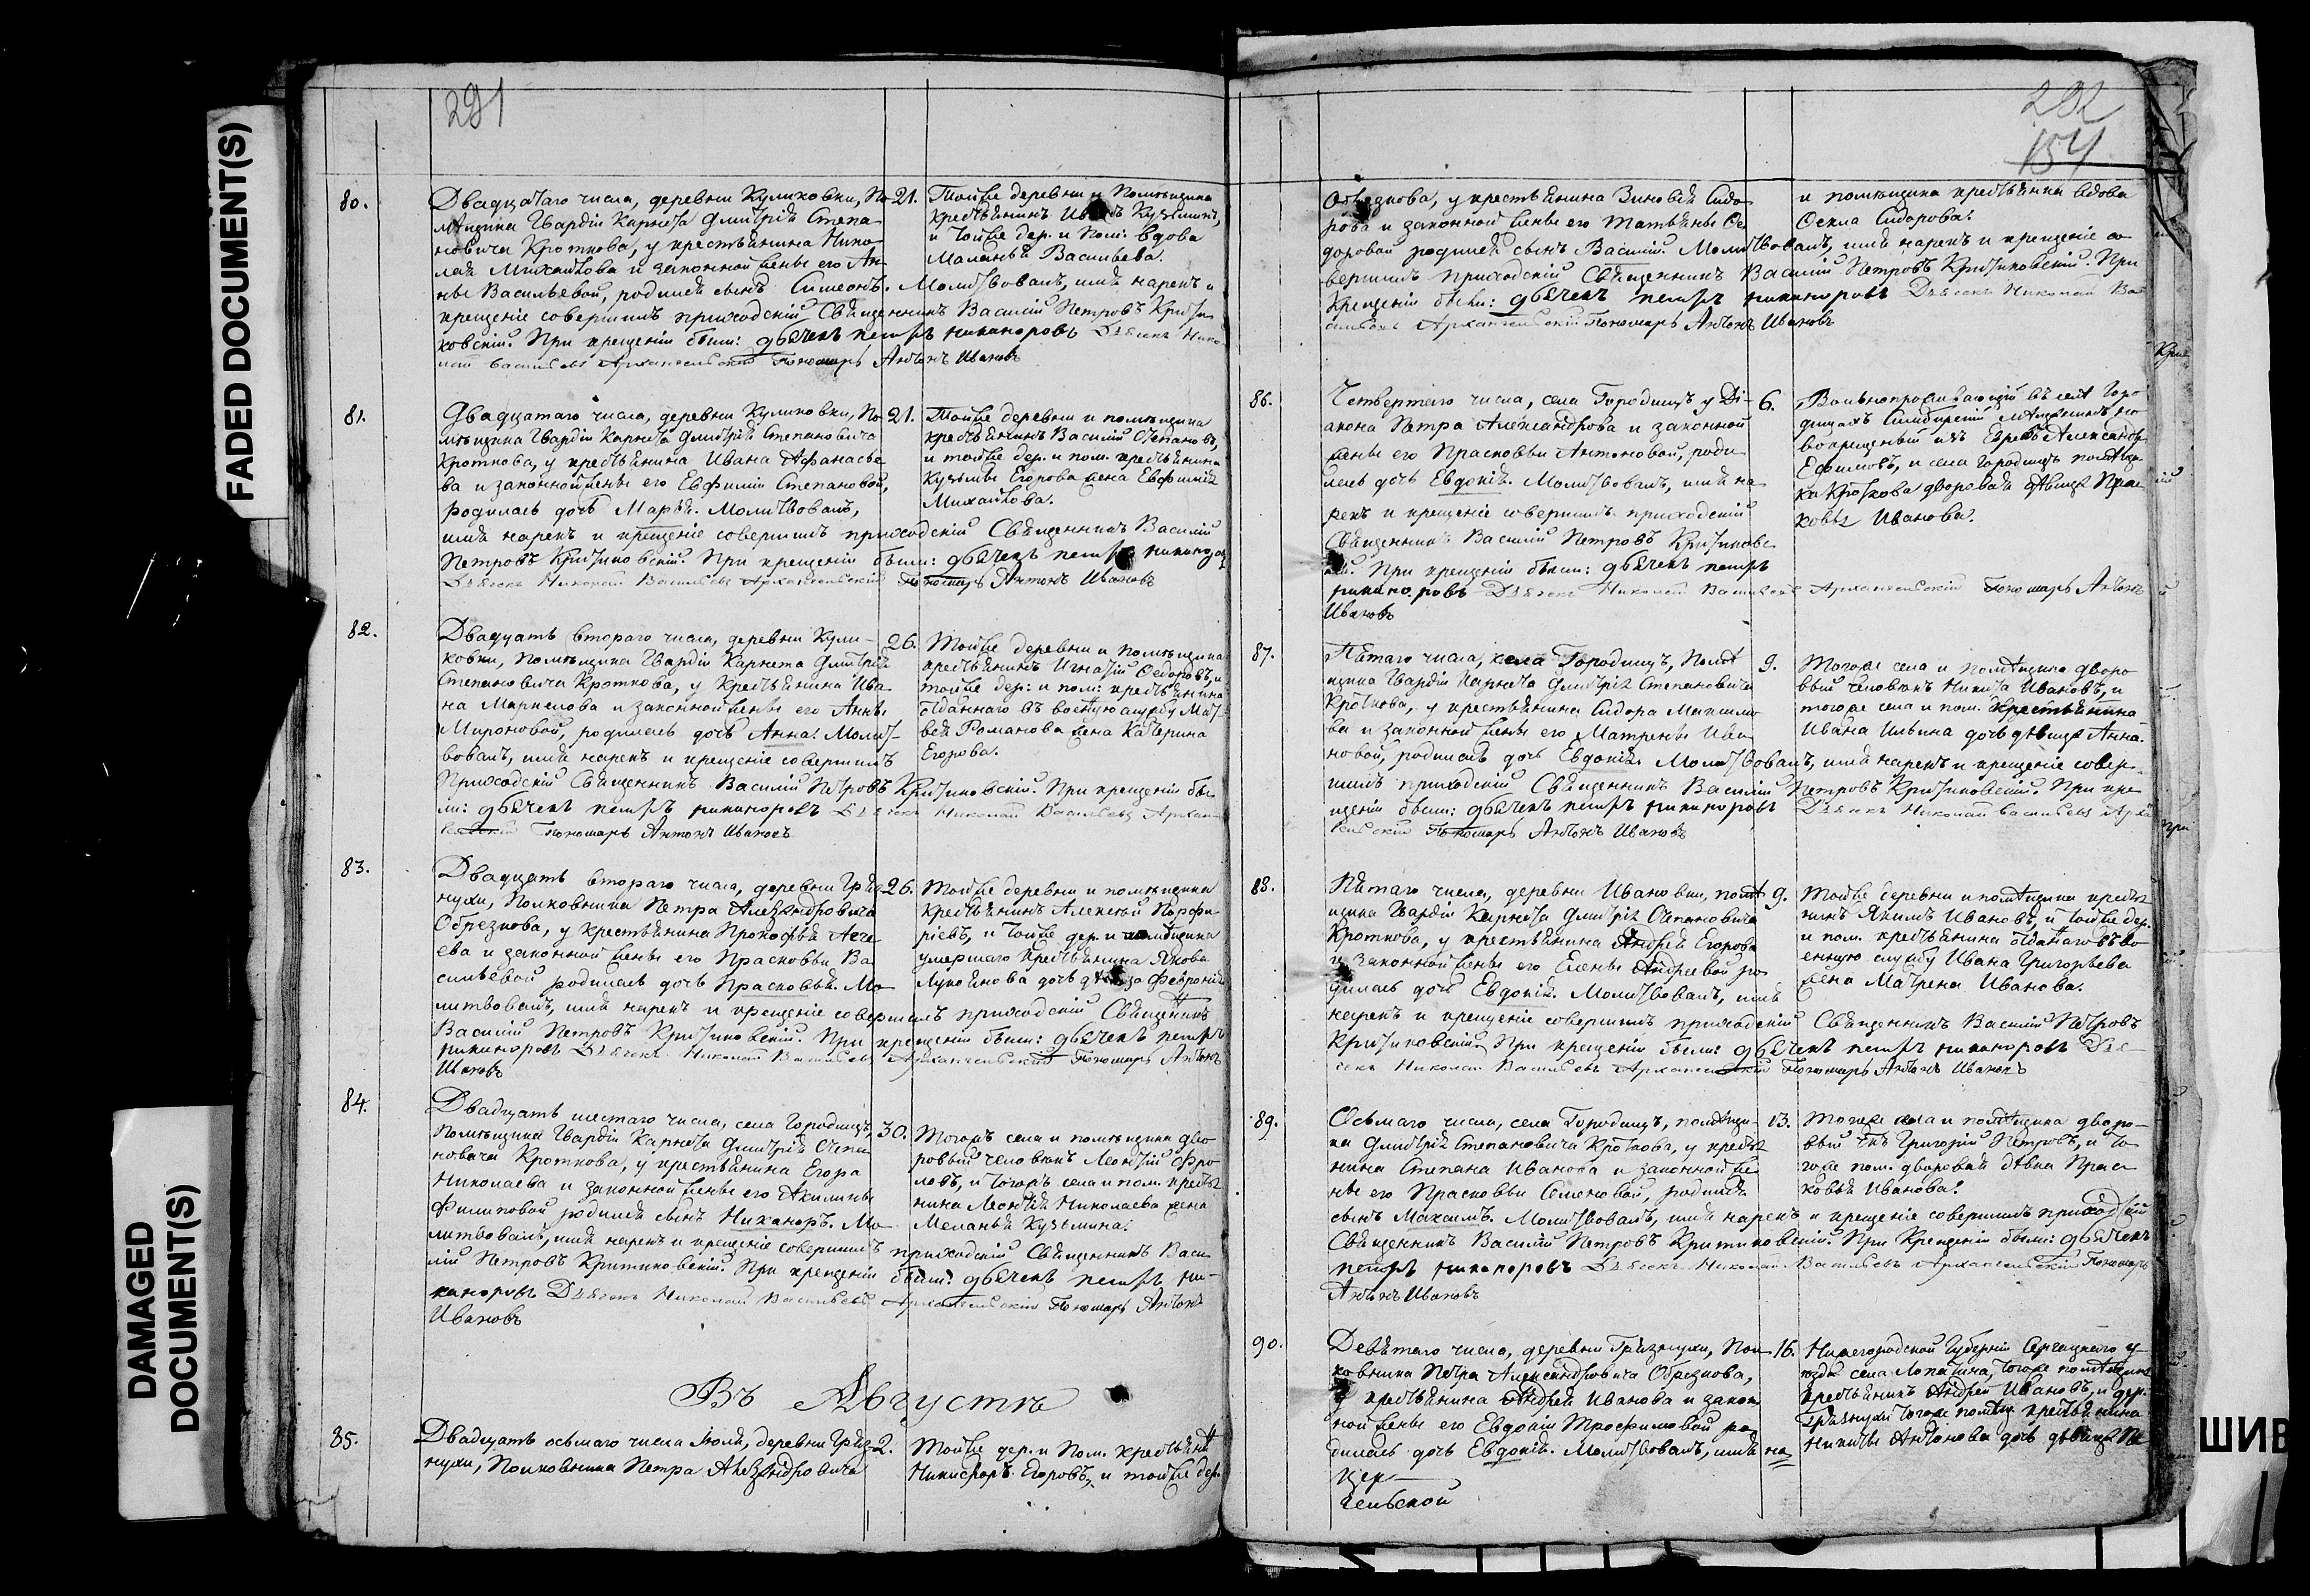 291
80.
Двадцатаго числа, деревни Куликовки, По-
мѣщика Гвардіи Карнета Дмитрія Степа-
новича Кроткова, у крестьянина Нико-
лая Михайлова и законной жены его Ан-
ны Васильевой, родился сынъ Симеонъ. Молитвовалъ, имя нарекъ и
крещеніе совершилъ приходскій Священникъ Василій Петровъ Крити-
ковскій. При крещеніи были: дьячекъ петръ никаноровъ Дьячекъ Нико-
лай Васильевъ Архангельскій Пономарь Антонъ Ивановъ
21.
Тойже деревни и Помѣщика
крестьянинъ Иванъ Кузьминъ,
и тойже дер. и Пом: вдова
Маланья Васильева.
81.
Двадцатаго числа, деревни Куликовки, По-
мѣщика Гвардіи Карнета Дмитрія Степановича
Кроткова, у крестьянина Ивана Афанасье-
ва и законной жены его Евфиміи Степановой,
родилась дочь Марья. Молитвовалъ,
имя нарекъ и крещеніе совершилъ приходскій Священникъ Василій
Петровъ Критиковскій. При крещеніи были: дьячекъ петръ никаноровъ
Дьячекъ Николай Васильевъ Архангельскій Пономарь Антонъ Ивановъ
21.
Тойже деревни и помѣщика
крестьянинъ Василій Степановъ,
и тойже дер. и пом. крестьянина
Кузьмы Егорова жена Евфимія
Михайлова.
82.
Двадцать втораго числа, деревни Кули-
ковки, Помѣщика Гвардіи Карнета Дмитрія
Степановича Кроткова, у Крестьянина Ива-
на Маркелова и законной жены его Анны
Мироновой, родилась дочь Анна. Молит-
вовалъ, имя нарекъ и крещеніе совершилъ
Приходскій Священникъ Василій Петровъ Критиковскій. При крещеніи бы-
ли: дьячекъ петръ никаноровъ Дьячекъ Николай Васильевъ Архан-
гельскій Пономарь Антонъ Ивановъ
26.
Тойже деревни и помѣщика
крестьянинъ Игнатій Ѳедоровъ, и
тойже дер: и пом: крестьянина
отданнаго въ военную службу Мат-
вея Романова жена Катерина
Егорова.
83.
Двадцать втораго числа, деревни Гряз-
нухи, Полковника Петра Александровича
Обрезкова, у крестьянина Прокофья Агее-
ева и законной жены его Прасковьи Ва-
сильевой родилась дочь Прасковья. Мо-
литвовалъ, имя нарекъ и крещеніе совершилъ приходскій Священникъ
Василій Петровъ Критиковскій. При крещеніи были: дьячекъ петръ
никаноровъ Дьячекъ Николай Васильевъ Архангельскій Пономарь Антонъ
Ивановъ
26.
Тойже деревни и помѣщика
Крестьянинъ Алексѣй Порфи-
ріевъ, и тойже дер. и помѣщика
умершаго Крестьянина Якова
Лукоянова дочь дѣвица Февронія
84.
Двадцать шестаго числа, села Городищъ,
Помѣщика Гвардіи Карнета Дмитрія Степа-
новича Кроткова, у крестьянина Егора
Николаева и законной жены его Акилины
Филиповой родился сынъ Никаноръ. Мо-
литвовалъ, имя нарекъ и крещеніе совершилъ приходскій Священникъ Васи-
лій Петровъ Критиковскій. При крещеніи были: дьячекъ петръ ни-
каноровъ Дьячекъ Николай Васильевъ Архангельскій Пономарь Антонъ
Ивановъ
30.
Тогожъ села и помѣщика дво-
ровый человѣкъ Леонтій Фро-
ловъ, и тогожъ села и пом. кресть-
нина Леонтія Николаева жена
Меланья Кузьмина.
Въ Августѣ
85.
Двадцать осьмаго числа Іюля, деревни Гряз-
нухи, Полковника Петра Александровича
2.
Тойже дер. и Пом. Крестьянинъ
Никифоръ Егоровъ, и тойже дер.
292
154
Обрезкова, у крестьянина Зиновья Сидо-
рова и законной жены его Татьяны Ѳе-
доровой родился сынъ Василій. Молитвовалъ, имя нарекъ и крещеніе со-
вершилъ приходскій Священникъ Василій Петровъ Критиковскій. При
Крещеніи были: дьячекъ петръ никаноровъ Дьячекъ Николай Ва-
сильевъ Архангельскій Пономарь Антонъ Ивановъ
и помѣщика крестьянка вдова
Ѳекла Сидорова.
86.
Четвертаго числа, села Городищъ у Ді-
акона Петра Александрова и законной
жены его Прасковьи Антоновой, роди-
лась дочь Евдокія. Молитвовалъ, имя на-
рекъ и крещеніе совершилъ приходскій
Священникъ Василій Петровъ Критиковс-
кій. При крещеніи были: дьячекъ петръ
никаноровъ Дьячекъ Николай Васильевъ Архангельскій Пономарь Антонъ
Ивановъ
6.
Вольнопроживающій въ селѣ Горо-
дищахъ Симбирскій мѣщанинъ но-
вокрещеный изъ Евреевъ Александръ
Ефимовъ, и села Городищъ помѣщи-
ка Кроткова дворовая дѣвица Прас-
ковья Иванова.
87.
Пятаго числа, села Городищъ, Помѣ-
щика Гвардіи Карнета Дмитрія Степановича
Кроткова, у крестьянина Сидора Максимо-
ва и законной жены его Матрены Ива-
новой, родилась дочь Евдокія Молитвовалъ, имя нарекъ и крещеніе совер-
шилъ приходскій Священникъ Василій Петровъ Критиковскій. При кре-
щеніи были: дьячекъ петръ никаноровъ Дьячекъ Николай Васильевъ Архан-
гельскій Пономарь Антонъ Ивановъ
9.
Тогоже села и помѣщика дворо-
вый человѣкъ Никита Ивановъ, и
тогоже села и пом. крестьянина
Ивана Ильина дочь дѣвица Анна.
88.
Пятаго числа, деревни Ивановки, помѣ-
щика Гвардіи Карнета Дмитрія Степановича
Кроткова, у крестьянина Андрея Егорова
и законной жены его Елены Андреевой ро-
дилась дочь Евдокія. Молитвовалъ, имя
нарекъ и крещеніе совершилъ приходскій Священникъ Василій Петровъ
Критиковскій. При крещеніи были: дьячекъ петръ никаноровъ Дья-
чекъ Николай Васильевъ Архангельскій Пономарь Антонъ Ивановъ
9.
Тойже деревни и помѣщика кресть-
нинъ Якимъ Ивановъ, и тойже дер.
и пом. крестьянина отданнаго въ во-
енную службу Ивана Григорьева
жена Матрена Иванова.
89.
Осьмаго числа, села Городищъ, помѣщи-
ка Дмитрія Степановича Кроткова, у кресть-
нина Степана Иванова и законной же-
ны его Прасковьи Семеновой, родился
сынъ Максимъ. Молитвовалъ, имя нарекъ и крещеніе совершилъ приходскій
Священникъ Василій Петровъ Критиковскій. При Крещеніи были: дьячекъ
петръ никаноровъ Дьячекъ Николай Васильевъ Архангельскій Пономарь
Антонъ Ивановъ
13.
Тогоже села и помѣщика дворо-
вый чкъ Григорій Петровъ, и то-
гоже пом. дворовая дѣвка Прас-
ковья Иванова.
90.
Девятаго числа, деревни Грязнухи, Пол-
ковника Петра Александровича Обрезкова,
у крестьянина Андрея Иванова и закон-
ной жены его Евдокіи Трофимовой ро-
дилась дочь Евдокія. Молитвовалъ, имя на-
16.
Нижегородской Губерніи Сергацкаго у-
ѣзда села Лопатина, тогоже помѣщика
крестьянинъ Андрей Ивановъ, и дер.
Грязнухи тогоже помѣщ. крестьянина
Никиты Антонова дочь дѣвица Пе-
цер-
FADED DOCUMENT(S)
DAMAGED
DOCUMENT(S)
ШИВ